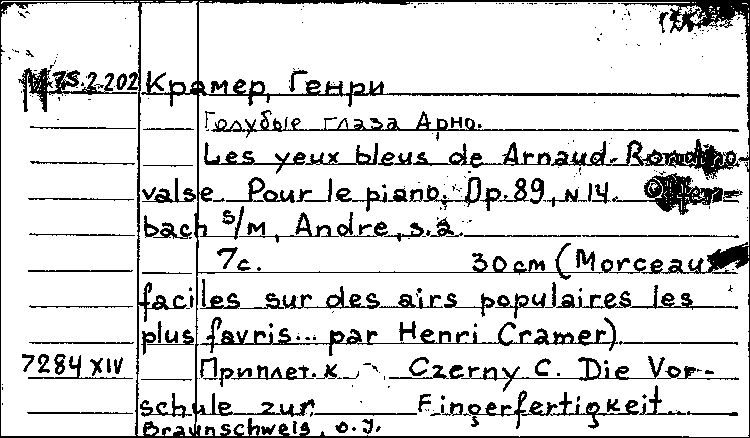 М 75.2.202 Крамер, Генри
Голубые глаза Арно.
Les yeux bleus de Arnaud. Romano-
valse. Pour le piano. Op. 89, N 14. Offen-
bach s/M, Andre, s.a.
7с. 30 cm (Morceaux
faciles sur des airs populaires les
plus favris... par Henri Cramer)
7284 XIV Приплет. к Czerny C. Die Vor-
schule zur Fingerfertigkeit...
Braunschweig, o. J.